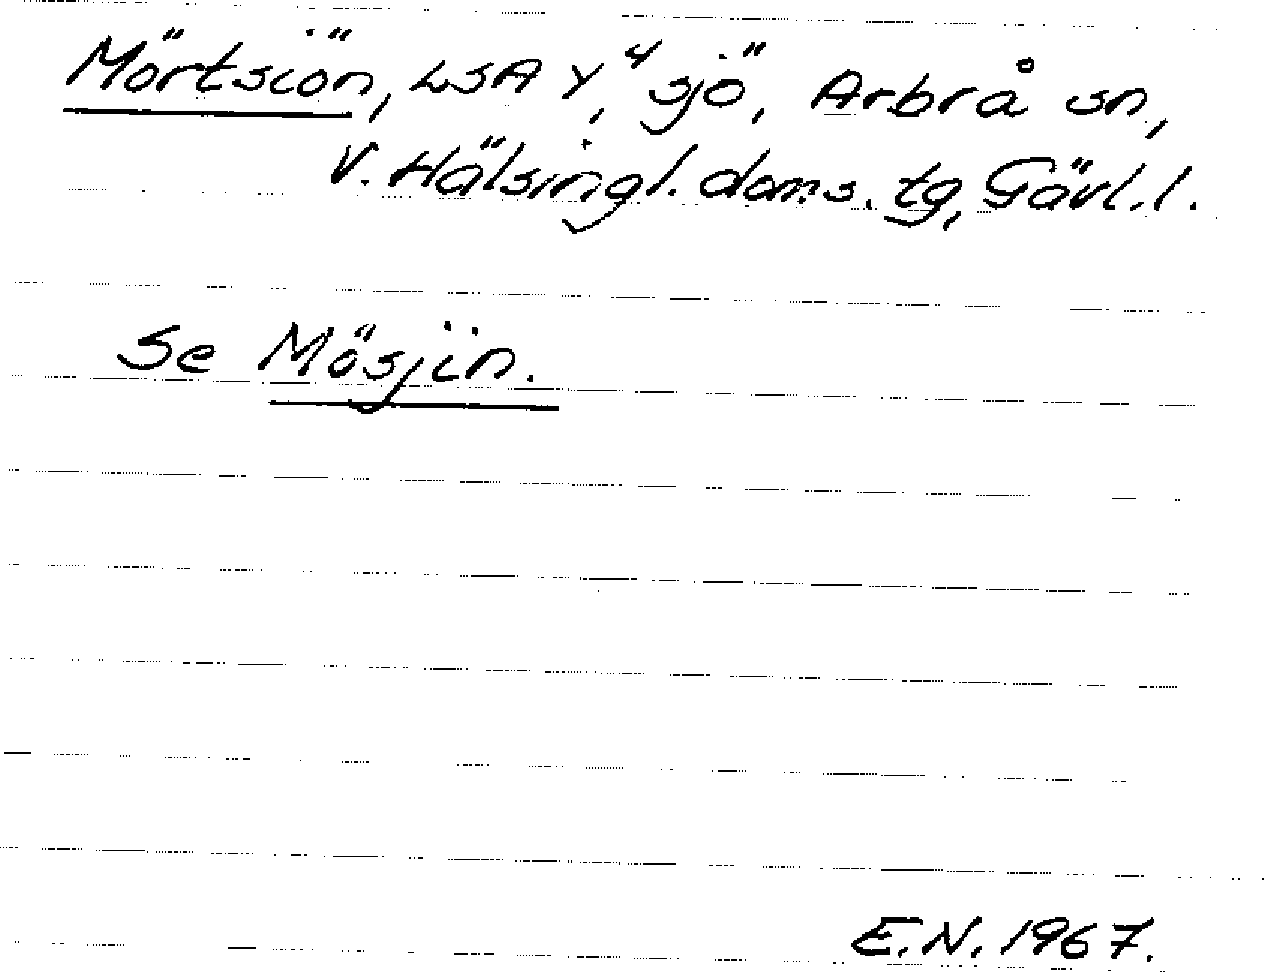 Mörtsiön, LSA Y,⁴ sjö, Arbrå sn,
V. Hälsingl. doms. tg, Gävl. l.
Se Mösjin.
E.N. 1967.